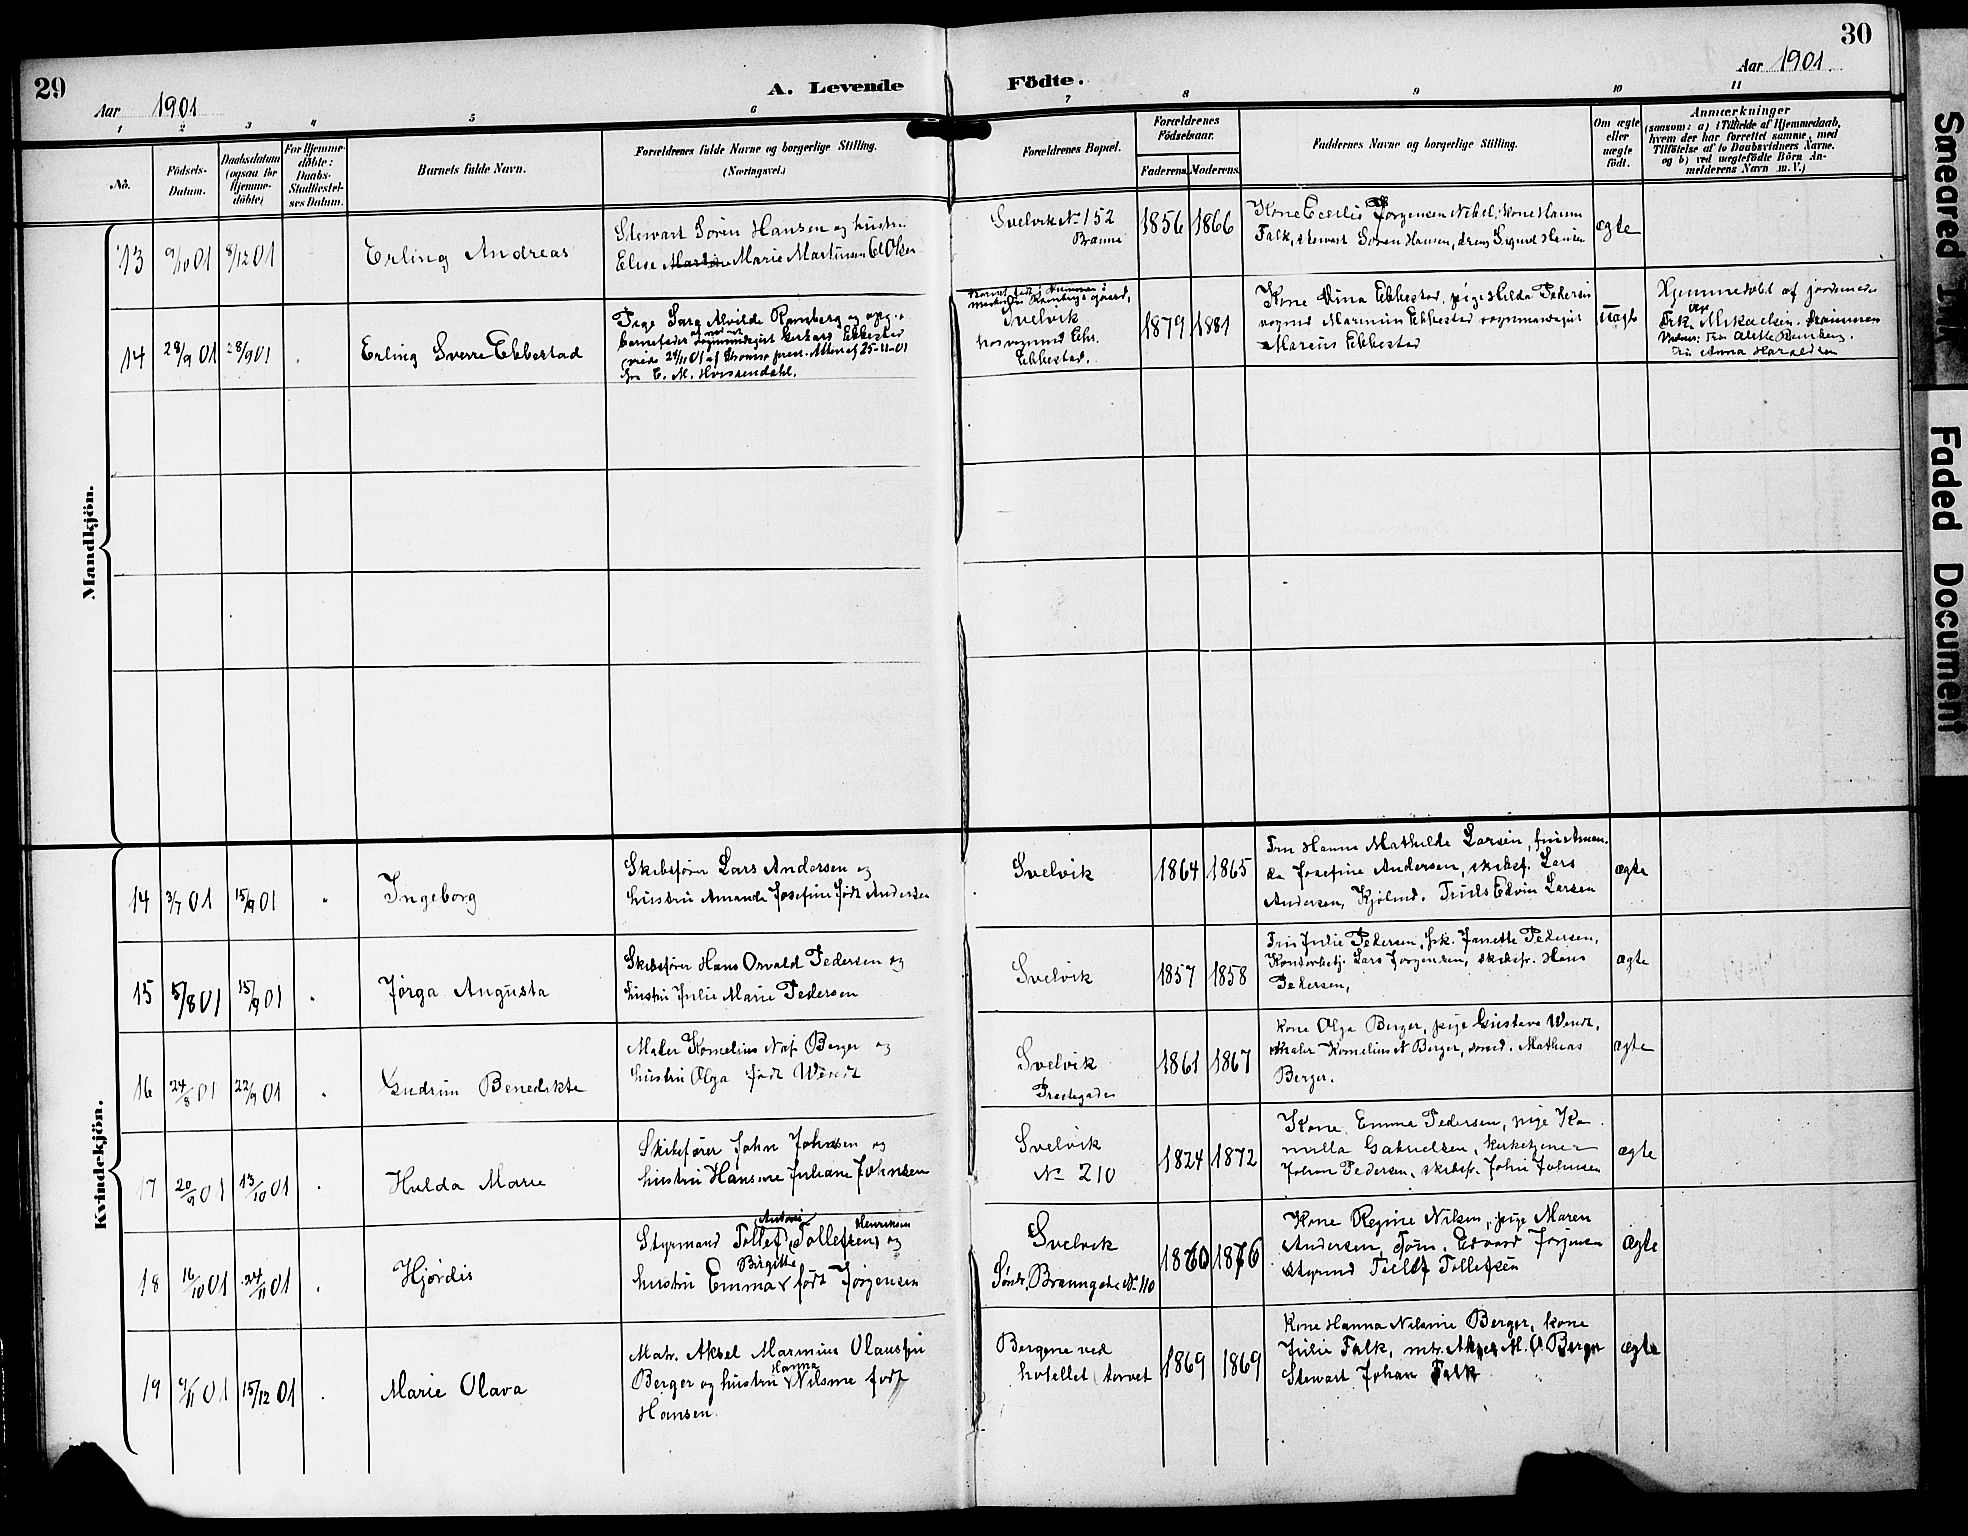 29
30
Aar 1901
Aar 1901
A. Levende
Födte.
1 2 3 4 5 6 7 8 9 10 11
No.
Födsels-
Datum.
Daabsdatum
(ogsaa for
Hjemme-
döbte)
For Hjemme-
döbte:
Daabs-
Stadfæstel-
ses Datum.
Barnets fulde Navn.
Forældrenes fulde Navne og borgerlige Stilling.
(Næringsvei.)
Forældrenes Bopæl.
Forældrenes
Födselsaar.
Faderens. Moderens.
Faddernes Navne og borgerlige Stilling.
Om ægte
eller
uægte
födt.
Anmærkninger
(saasom: a) i Tilfælde af Hjemmedaab,
hvem der har forrettet samme, med
Tilföielse af to Daabsvidners Navne.
og b) ved uægtefödte Börn An-
melderens Navn m. V.)
Mandkjön.
13 9/10 01 8/12 01
Erling Andreas
Stewart Sören Hansen og hustru
Elise Marie Martinsen
Svelvik No 152
1856 1866
Kone Cecilie Jörgensen Nebel, kone Hanna
Falk, stewart Sören Hansen, dreng Sigurd Hansen
ægte
14 28/9 01 28/9 01
Erling Sverre Ebbestad
Pige Sara Alvilde Ramberg og opg.
barnefader Gerhard Ebbestad
Svelvik
hos Chr.
Ebbestad.
1879 1881
Kone Dina Ebbestad, pige Hilda Pedersen
Marinius Ebbestad
Marius Ebbestad
uægte
Hjemmedöbt af jordemoder
Frk. Mikaelsen. Drammen
Fru Anna Haraldsen
Kvindekjön.
14 3/7 01 15/9 01
Ingeborg
Skibsförer Lars Andersen og
hustru Amanda Josefine födt Andersen
Svelvik
1864 1865
Fru Hanna Mathilde Larsen, frue Aman-
da Josefine Andersen, skibsf. Lars
Andersen, Edvin Larsen
ægte
15 5/8 01 15/9 01
Jörga Augusta
Skibsförer Hans Osvald Pedersen og
hustru Julie Marie Pedersen
Svelvik
1857 1858
Fru Julie Pedersen, frk. Janette Pedersen,
Lars Jörgensen, skibsfr. Hans
Pedersen,
ægte
16 24/8 01 22/9 01
Gudrun Benedikte
Maler Kornelius Nap Berger og
hustru Olga födt Wendt
Svelvik
1861 1867
kone Olga Berger, pige Gustava Wendt,
Maler Kornelius N Berger, smed. Mathias
Berger.
ægte
17 20/9 01 13/10 01
Hulda Marie
Skibsförer John Johnsen og
hustru Hansine Juliane Johnsen
Svelvik
No 210
1824 1872
Kone Emma Pedersen, pige Ka-
milla Gabrielsen, kirketjener
Johan Pedersen, skibsf. John Johnsen
ægte
18 16/10 01 24/11 01
Hjördis
Antoni Henriksen
Styrmand Tollef (Tollefsen) og
Birgitte
hustru Emma födt Jörgensen
Svelvik
Sönd. Bramgade No 110
1870 1876
Kone Regine Nilsen, pige Maren
Andersen, Töm. Edvard Jörgensen
styrmd Tollef Tollefsen
ægte
19 9/11 01 15/12 01
Marie Olava
Matr. Aksel Marinius Olaussen
Hanna
Berger og hustru Nilsine födt
Hansen.
Bergene ved
hotellet, torvet
1869 1869
Kone Hanna Nilsine Berger, kone
Julie Falk, mtr. Aksel M. O. Berger
Stewart Johan Falk
ægte
Smeared Ink
Faded Document